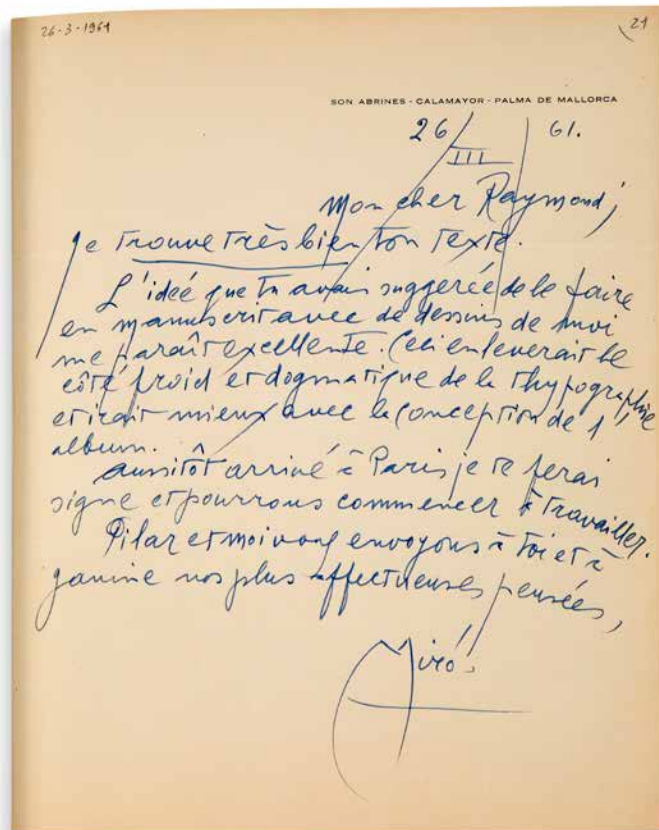 26-3-1961
21
SON ABRINES - CALAMAYOR - PALMA DE MALLORCA
26/III/61.
Mon cher Raymond,
je trouve très bien ton texte.
L'ideé que tu avais suggerée de le faire
en manuscrit avec de dessins de moi
me paraît excellente. Ceci enleverait le
côté froid et dogmatique de la thypographie
et irait mieux avec la conception de l'
album.
aussitôt arrivé à Paris je te ferai
signe et pourrons commencer à travailler.
Pilar et moi vous envoyons à toi et à
Janine nos plus affectueuses pensées,
Miró.